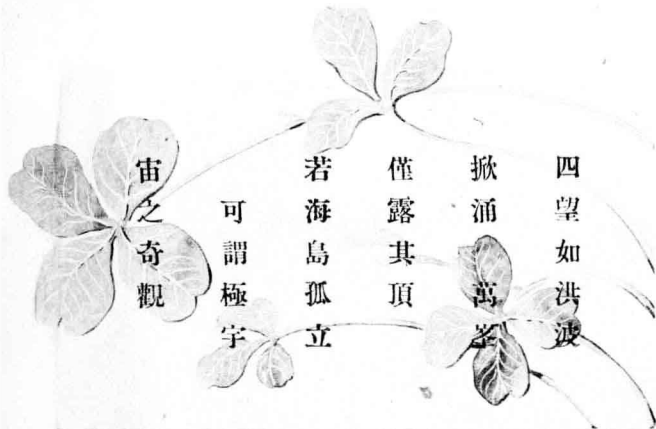 四望如洪波
掀涌　萬峯
僅露其頂
若海島孤立
可謂極宇
宙之奇觀